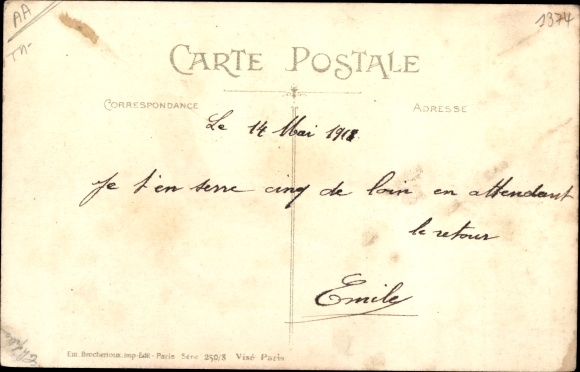 AA
1374
CARTE POSTALE
CORRESPONDANCE
ADRESSE
Le 14 Mai 1918
Je t'en serre cinq de loin en attendant
le retour
Emile
Em. Brocherioux imp-Edit - Paris Série 250/8 Visé Paris